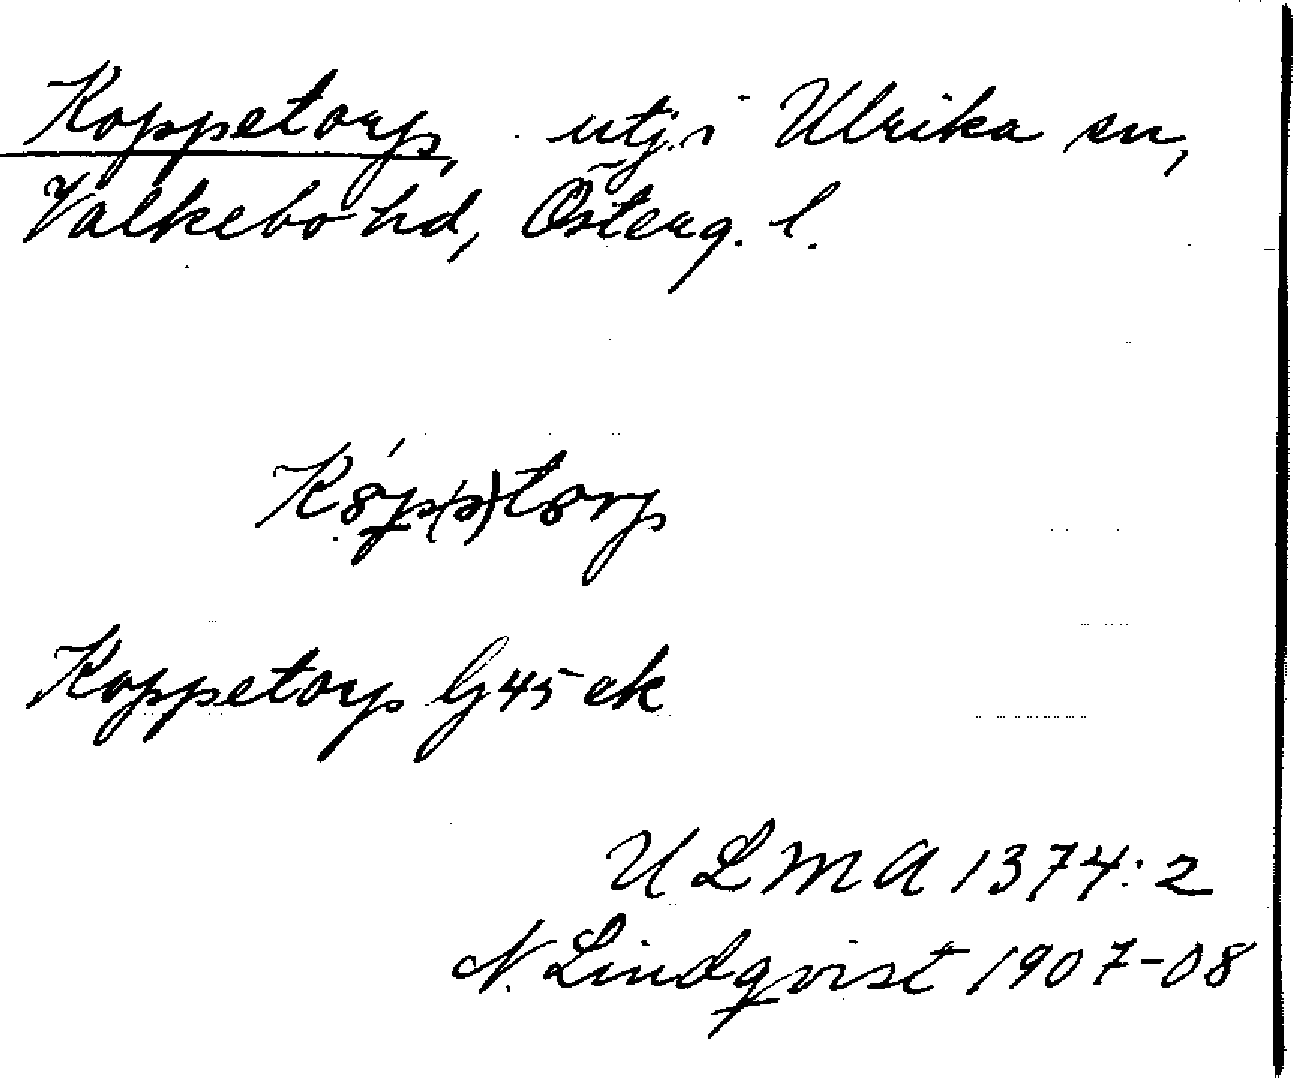 Koppetorp, utj. i Ulrika sn,
Valkebo hd, Österg. l.
Kȣ́p(ə)tȣrp
Koppetorp Gj 45 ek
ULMA 1374:2
N. Lindqvist 1907-08